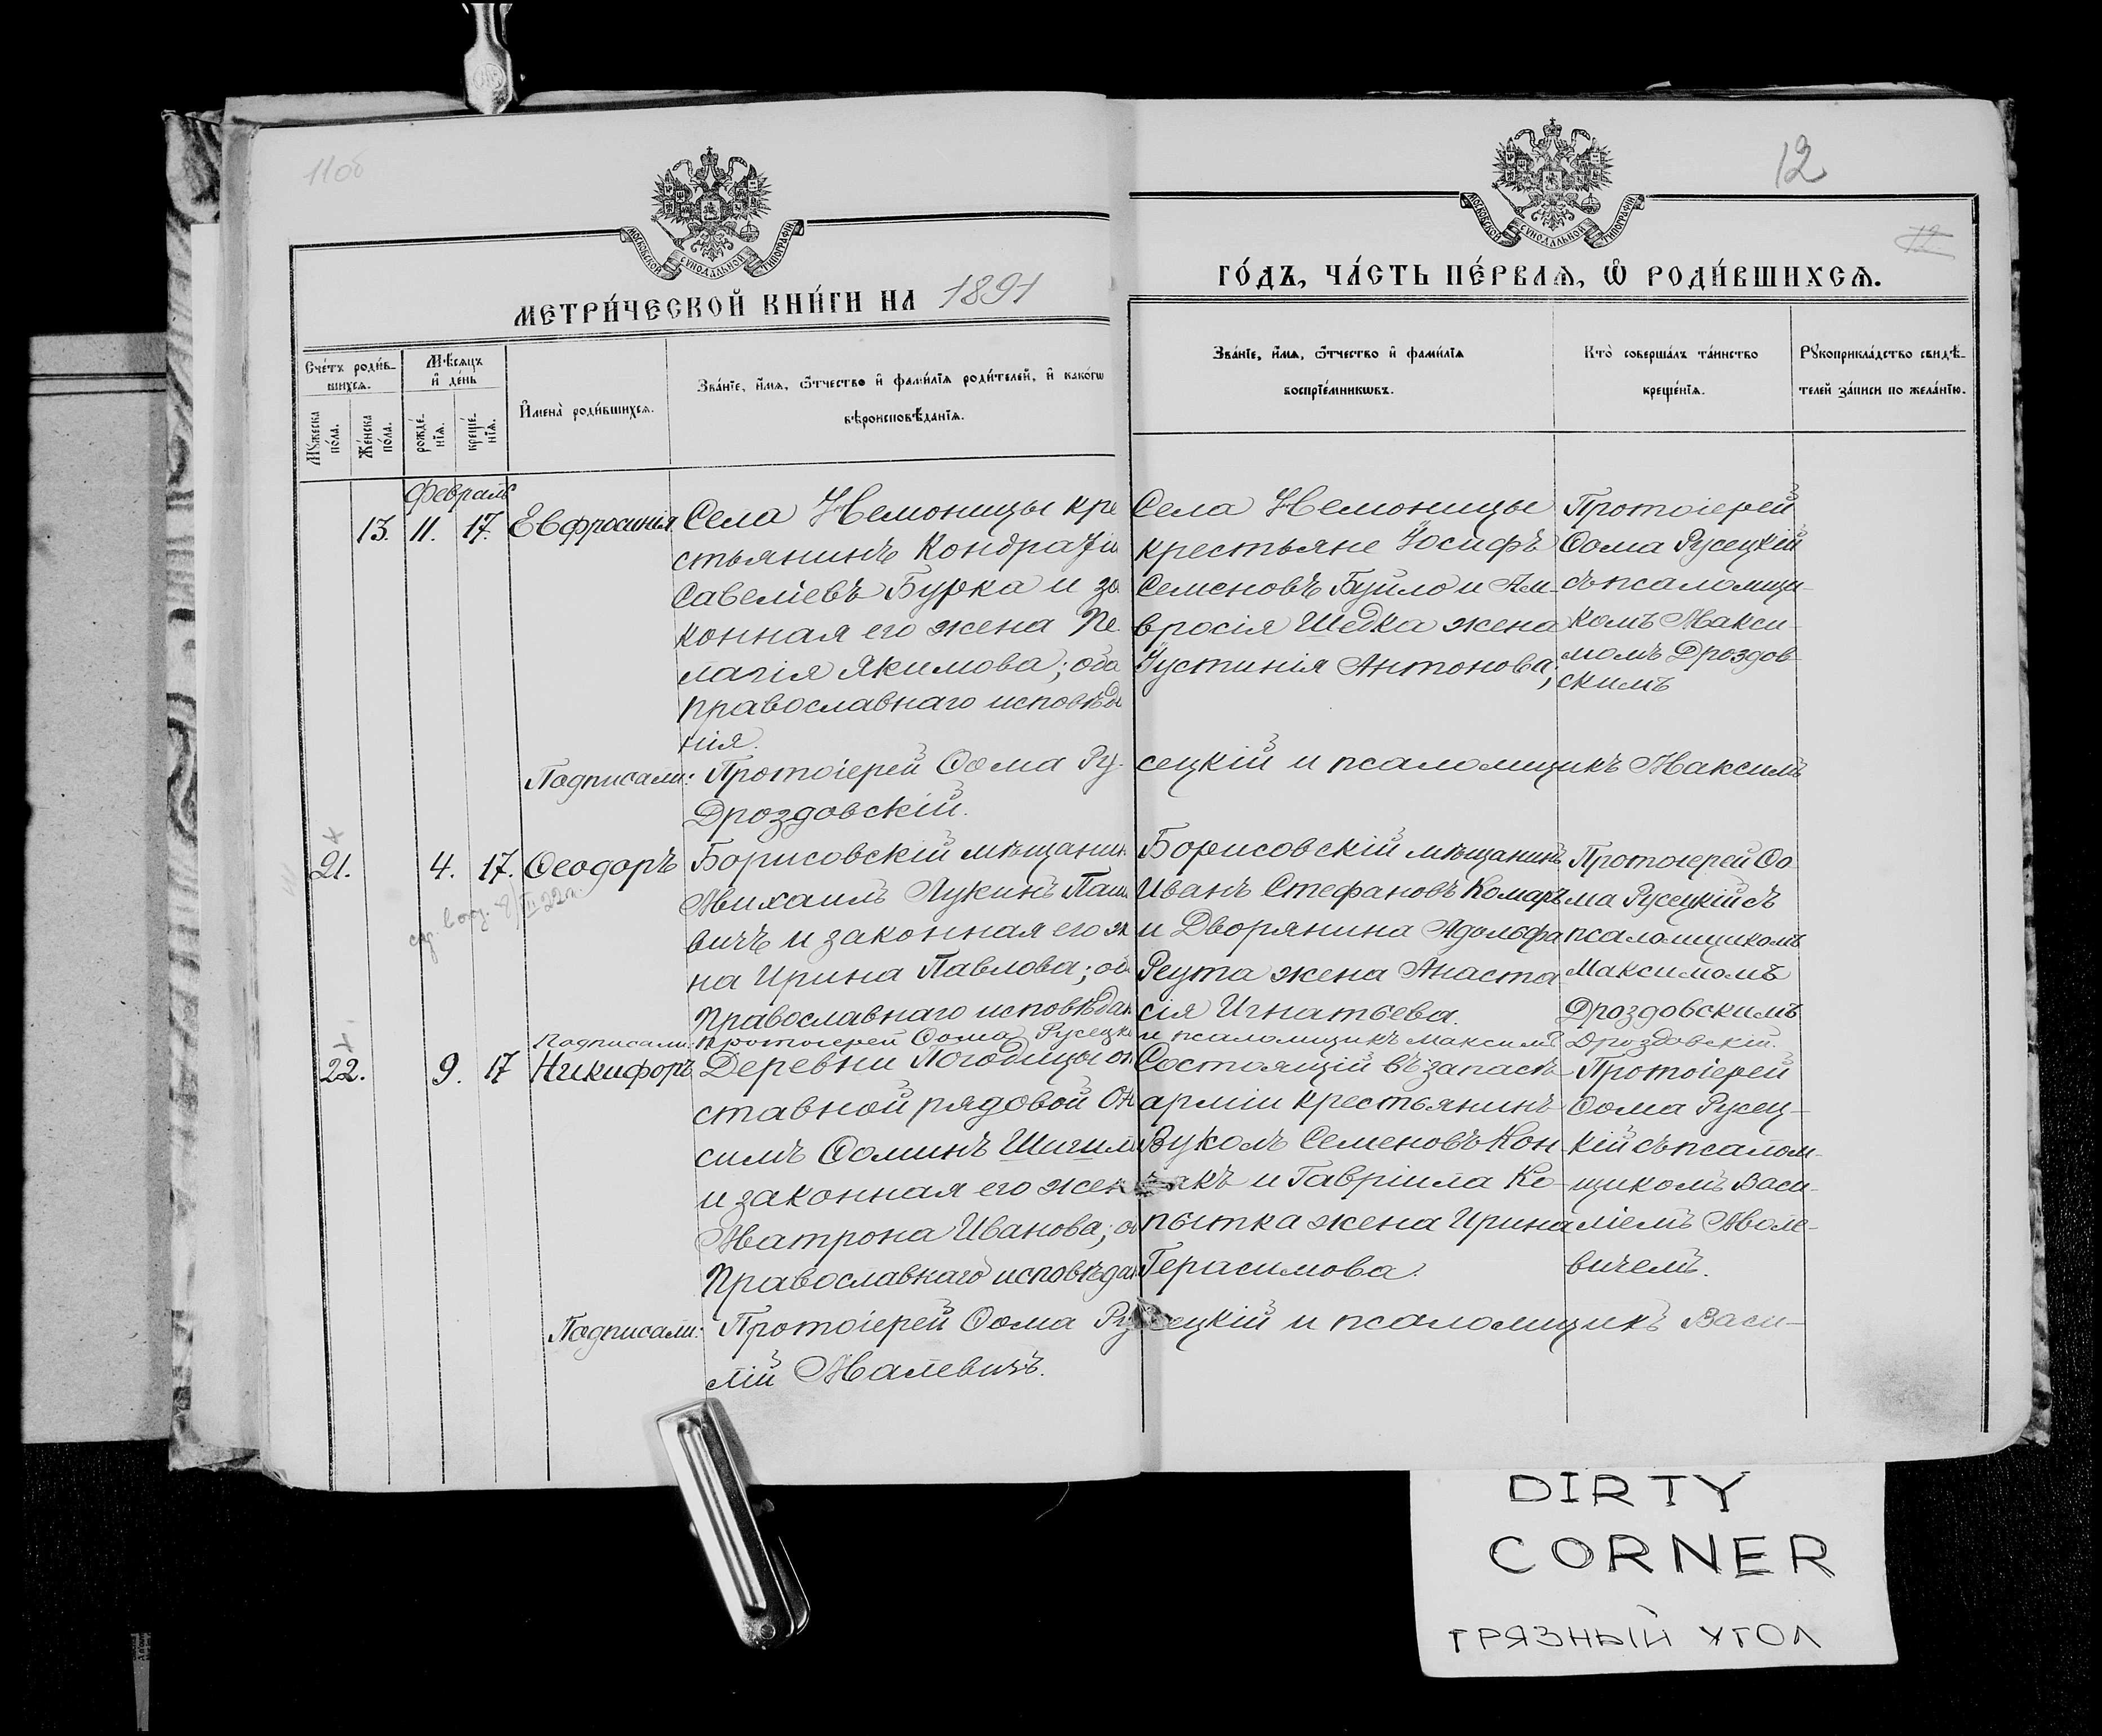 11об
12
МОСКОВСКОЙ СѴНОДАЛЬНОЙ ТИПОГРАФІИ
МОСКОВСКОЙ СѴНОДАЛЬНОЙ ТИПОГРАФІИ
МЕТРИ́ЧЕСКОЙ КНИ́ГИ НА 1891
ГО́ДЪ, ЧА́СТЬ ПЕ́РВАѦ, Ѡ҆ РОДИ́ВШИХСѦ.
Сче́тъ роди́в-
шихсѧ.
Мѹ́жеска по́ла.
Же́нска по́ла.
Мѣ́сѧцъ и҆ де́нь
рожде́-
нїѧ.
креще́-
нїѧ.
И҆мена̀ роди́вшихсѧ.
Зва́нїе, и҆́мѧ, ѻ҆́тчество и҆ фами́лїѧ роди́телей, и҆ како́гѡ
вѣроисповѣ́данїѧ.
Зва́нїе, и҆́мѧ, ѻ҆́тчество и҆ фами́лїѧ
воспрїе́мникѡвъ.
Кто̀ соверша́лъ та́инство
креще́нїѧ.
Рѹкоприкла́дство свидѣ́-
телей за́писи по жела́нїю.
Февраль
13. 11. 17. Евфросинія
Села Немоницы кре
стьянинъ Кондратій
Савеліевъ Бурка и за
конная его жена Пе
лагія Якимова; оба
православнаго исповѣда
нія.
Села Немоницы
крестьяне Іосифъ
Семеновъ Буйло и Ам-
вросія Шедка жена
Іустинія Антонова;
Протоіерей
Ѳома Русецкій
съ псаломщи-
комъ Макси-
момъ Дроздов-
скимъ
Подписали: Протоіерей Ѳома Ру- сецкій и псаломщикъ Максимъ
Дроздовскій.
21. 4. 17. Ѳеодоръ
Борисовскій мѣщанин
Михаилъ Лукинъ Паш
вичъ и законная его ж
на Ирина Павлова; об
Православнаго исповѣдан
Борисовскій мѣщанинъ
Иванъ Стефановъ Комаръ
и Дворянина Адольфа
Реута жена Анаста
сія Игнатьева.
Протоіерей Ѳо
ма Русецкій съ
псаломщикомъ
Максимомъ
Дроздовскимъ
Подписали: протоіерей Ѳома Русецкі и псаломщикъ Максимъ Дроздовскій.
22. 9. 17 Никифоръ
Деревни Погодицы от
ставной рядовой Они
симъ Ѳоминъ Шигил
и законная его жен
Матрона Иванова; о
Православнаго исповѣдан
Состоящій въ запасѣ
арміи крестьянинъ
Вуколъ Семеновъ Кон
акъ и Гавріила Ко
пытка жена Ирина
Герасимова.
Протоіерей
Ѳома Русец-
кій съ псалом-
щикомъ Васи-
ліемъ Мале-
вичемъ.
Подписали: Протоіерей Ѳома Русецкій и псаломщикъ Васи-
лій Малевичъ.
DIRTY
CORNER
ГРЯЗНЫЙ УГОЛ